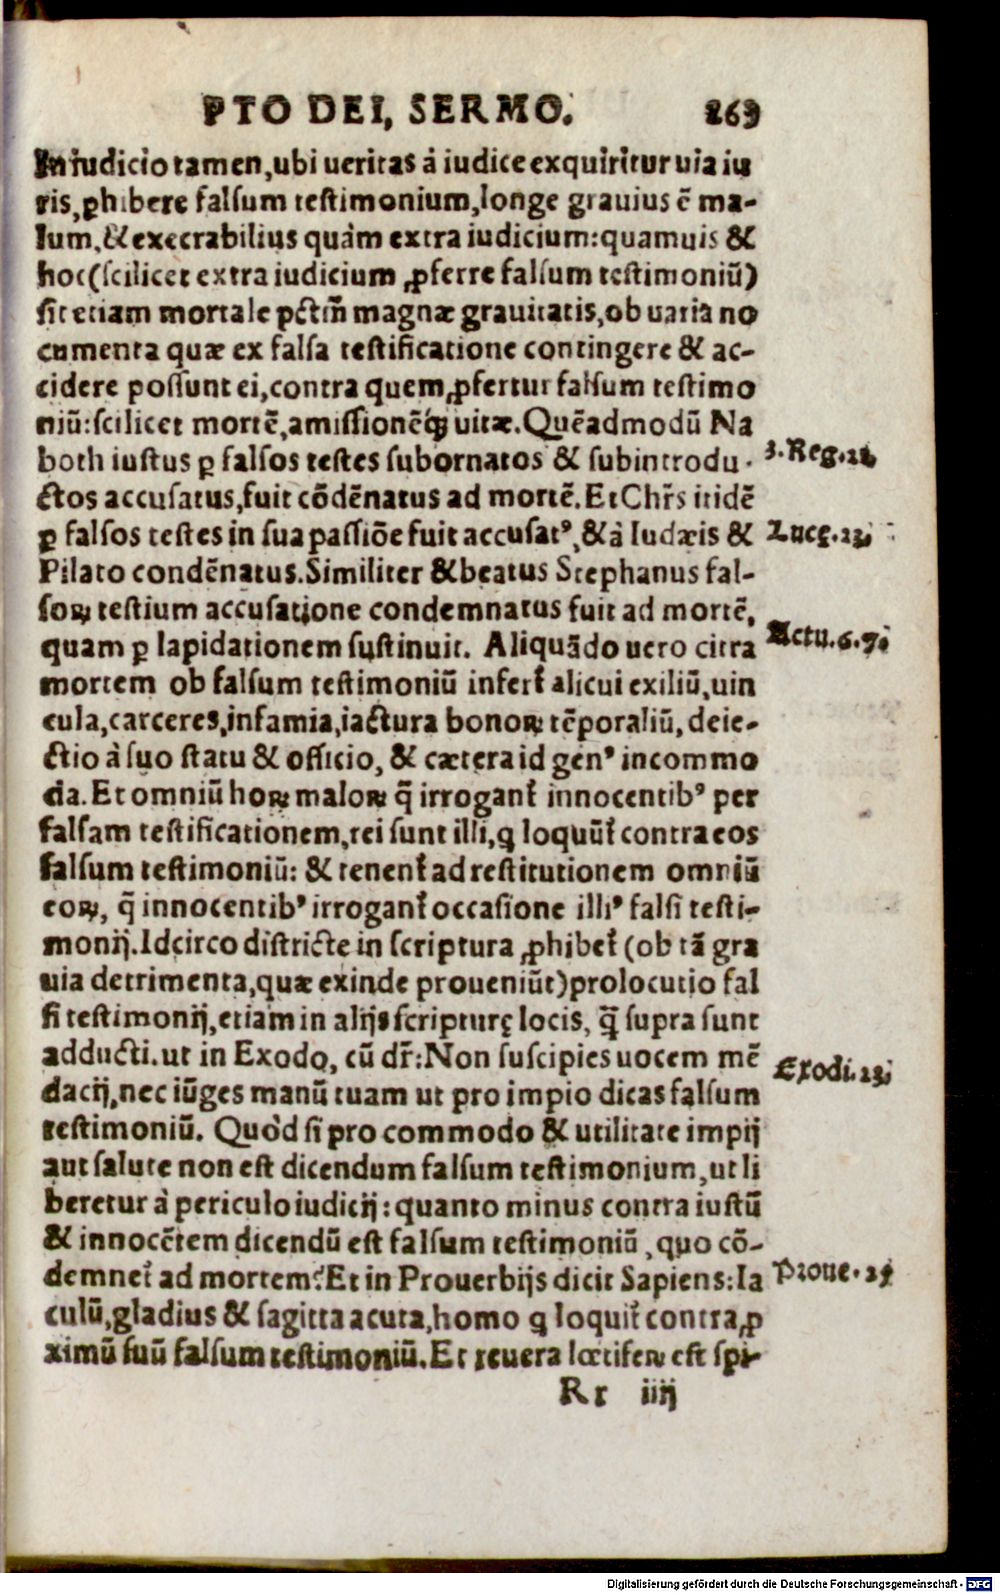 ꝐTO DEI, SERMO. 263
In iudicio tamen,ubi ueritas à iudice exquiritur uia iu
ris,ꝓhibere falsum testimonium,longe grauius ē ma-
lum,& execrabilius quàm extra iudicium:quamuis &
hoc(scilicet extra iudicium ꝓferre falsum testimoniū)
sit etiam mortale pctm̄ magnæ grauitatis,ob uaria no
cumenta quæ ex falsa testificatione contingere & ac-
cidere possunt ei,contra quem ꝓfertur falsum testimo
niū:scilicet mortē,amissionēq́ꝫ uitæ.Quēadmodū Na
both iustus ꝑ falsos testes subornatos & subintrodu-
ctos accusatus,fuit cōdēnatus ad mortē.Et Chr̄s itidē
ꝑ falsos testes in sua passiōe fuit accusatꝰ,& à Iudæis &
Pilato condēnatus.Similiter & beatus Stephanus fal-
soꝝ testium accusatione condemnatus fuit ad mortē,
quam ꝑ lapidationem sustinuit. Aliquādo uero citra
mortem ob falsum testimoniū infert᷑ alicui exiliū,uin
cula,carceres,infamia,iactura bonoꝝ tēporaliū,deie-
ctio à suo statu & officio, & cætera id genꝰ incommo
da.Et omniū hoꝝ maloꝝ q̄ irrogant᷑ innocentibꝰ per
falsam testificationem,rei sunt illi,ꝗ loquūt᷑ contra eos
falsum testimoniū: & tenent᷑ ad restitutionem omniū
eoꝝ, q̄ innocentibꝰ irrogant᷑ occasione illiꝰ falsi testi-
monij.Idcirco districte in scriptura ꝓhibet᷑ (ob tā gra
uia detrimenta,quæ exinde proueniūt)prolocutio fal
si testimonij,etiam in alijs scripturę locis, q̄ supra sunt
adducti.ut in Exodo, cū dr̄:Non suscipies uocem mē
dacij,nec iūges manū tuam ut pro impio dicas falsum
testimoniū. Quòd si pro commodo & utilitate impij
aut salute non est dicendum falsum testimonium,ut li
beretur à periculo iudicij:quanto minus contra iustū
& innocētem dicendū est falsum testimoniū,quo cō-
demnet᷑ ad mortem?Et in Prouerbijs dicit Sapiens:Ia
culū,gladius & sagitta acuta,homo ꝗ loquit᷑ contra ꝓ
ximū suū falsum testimoniū.Et reuera lœtiferꝝ est spi-
Rr iiij
3.Reg.21
Lucę.23.
Actu.6.7.
Exodi.23.
Proue.25
Digitalisierung gefördert durch die Deutsche Forschungsgemeinschaft - DFG